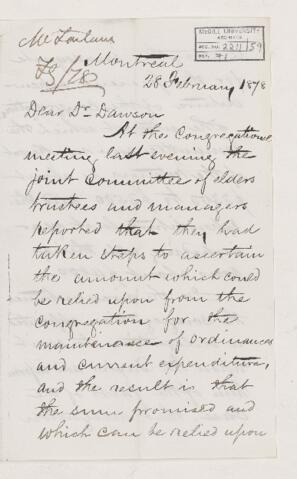 McFarlane
FS/78
McGILL UNIVERSITY
ARCHIVES
ACC. NO. 2211/59
REF. 
Montreal
28 February 1878
Dear Dr Dawson
At the Congregational
meeting last evening the
joint Committee of elders
trustees and managers
reported that they had
taken steps to ascertain
the amount which could
be relied upon from the
congregation for the
maintenance of Ordinances
and current expenditure,
and the result is that
the sum promised and
which can be relied upon